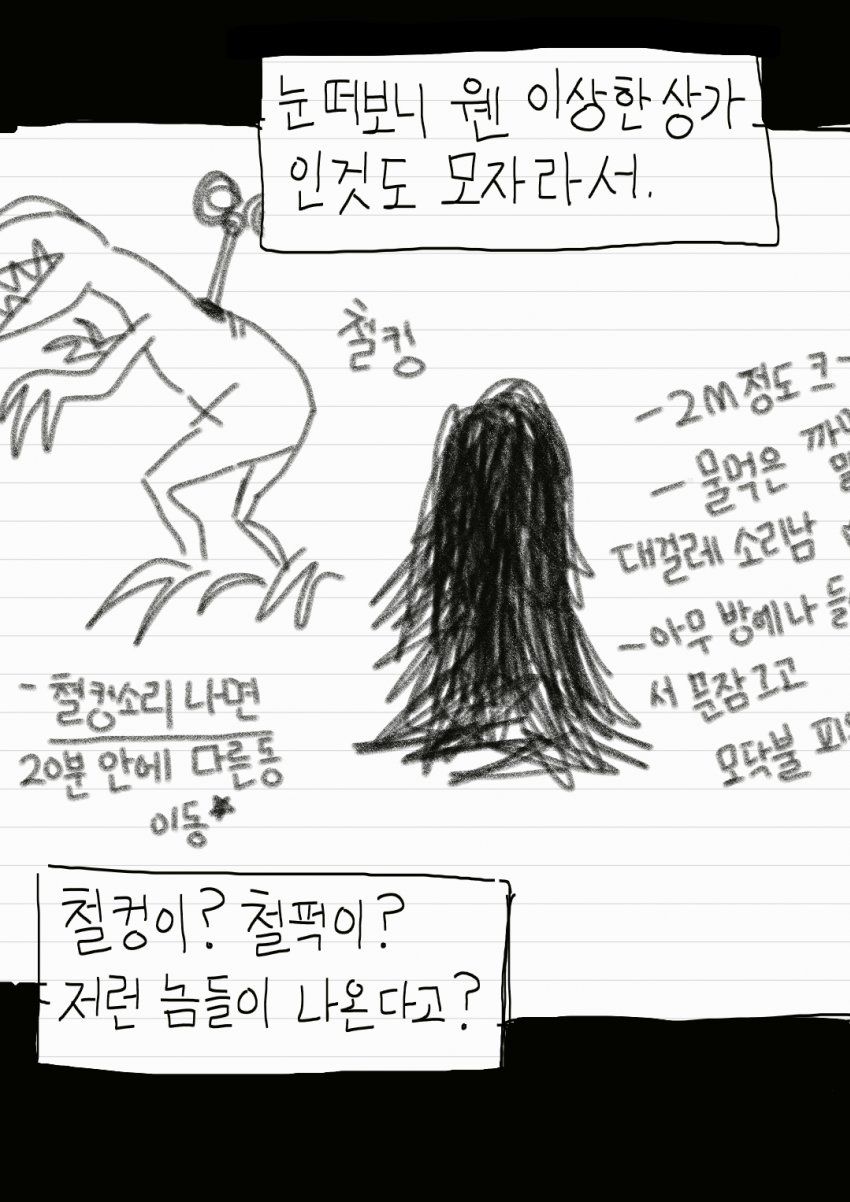 눈 떠보니 웬 이상한 상가
인것도 모자라서.
철컹
- 2M 정도 크
- 물먹은
대걸레 소리남
- 아무 방에나
서 문잠그고
모닥불
- 철컹소리 나면
20분 안에 다른동
이동★
철컹이? 철퍽이?
저런 놈들이 나온다고?